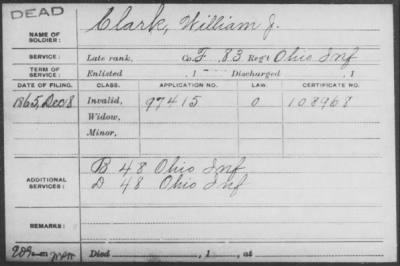 DEAD
NAME OF SOLDIER: Clark, William J.
SERVICE: Late rank, Co. F. 83 Reg't Ohio Inf
TERM OF SERVICE: Enlisted , 1 Discharged , 1
DATE OF FILING. CLASS. APPLICATION NO. LAW. CERTIFICATE NO.
1865, Dec 18 Invalid, 97415 0 108968
Widow,
Minor,
ADDITIONAL SERVICES: B 48 Ohio Inf
D 48 Ohio Inf
REMARKS:
Died , 1 , at